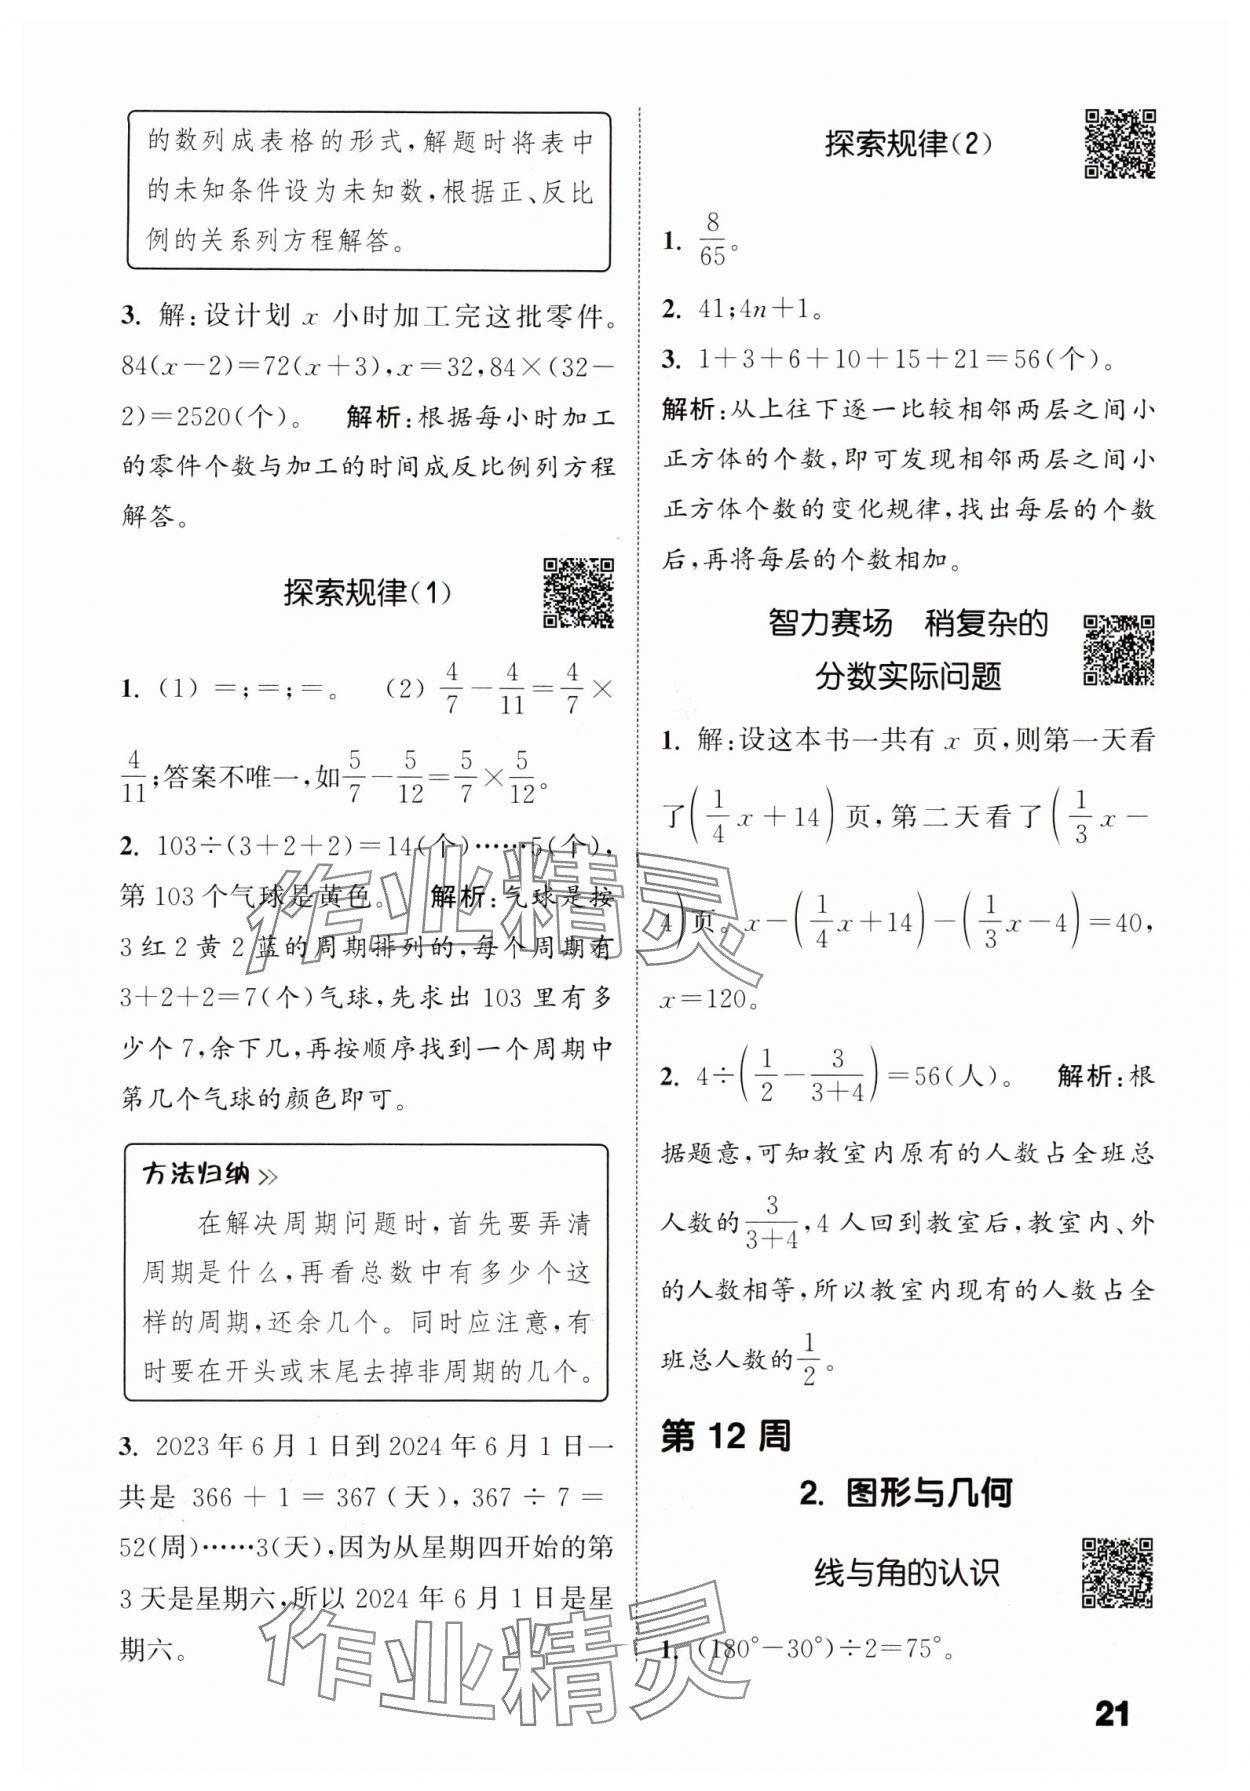 的数列成表格的形式,解题时将表中
的未知条件设为未知数,根据正、反比
例的关系列方程解答。
3. 解:设计划 x 小时加工完这批零件。
84(x－2)＝72(x＋3),x＝32,84×(32－
2)＝2520(个)。 解析:根据每小时加工
的零件个数与加工的时间成反比例列方程
解答。
探索规律(1)
1. (1) ＝;＝;＝。 (2) 4/7－4/11＝4/7×
4/11;答案不唯一,如5/7－5/12＝5/7×5/12。
2. 103÷(3＋2＋2)＝14(个)……5(个),
第 103 个气球是黄色。 解析:气球是按
3 红 2 黄 2 蓝的周期排列的,每个周期有
3＋2＋2＝7(个)气球,先求出 103 里有多
少个 7,余下几,再按顺序找到一个周期中
第几个气球的颜色即可。
方法归纳
在解决周期问题时,首先要弄清
周期是什么,再看总数中有多少个这
样的周期,还余几个。同时应注意,有
时要在开头或末尾去掉非周期的几个。
3. 2023 年 6 月 1 日到 2024 年 6 月 1 日一
共是 366 ＋ 1 ＝ 367 (天), 367 ÷ 7 ＝
52(周)……3(天),因为从星期四开始的第
3 天是星期六,所以 2024 年 6 月 1 日是星
期六。
探索规律(2)
1. 8/65。
2. 41;4n＋1。
3. 1＋3＋6＋10＋15＋21＝56(个)。
解析:从上往下逐一比较相邻两层之间小
正方体的个数,即可发现相邻两层之间小
正方体个数的变化规律,找出每层的个数
后,再将每层的个数相加。
智力赛场 稍复杂的
分数实际问题
1. 解:设这本书一共有 x 页,则第一天看
了(1/4x＋14)页,第二天看了(1/3x－
4)页。x－(1/4x＋14)－(1/3x－4)＝40,
x＝120。
2. 4÷(1/2－3/(3＋4))＝56(人)。 解析:根
据题意,可知教室内原有的人数占全班总
人数的3/(3＋4),4 人回到教室后,教室内、外
的人数相等,所以教室内现有的人数占全
班总人数的1/2。
第 12 周
2. 图形与几何
线与角的认识
1. (180°－30°)÷2＝75°。
21
作业精灵
作业精灵